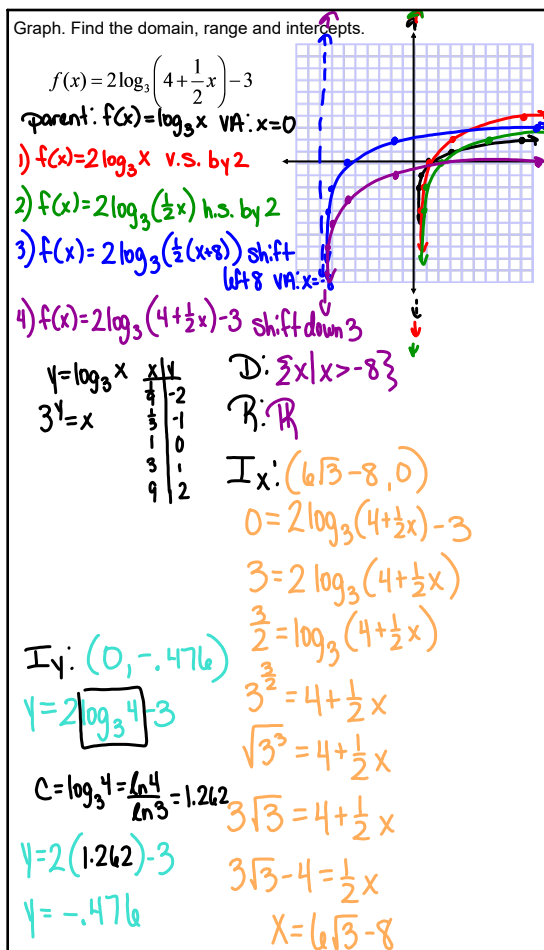 Graph. Find the domain, range and intercepts.
f(x) = 2log₃(4 + 1/2 x) − 3
parent: f(x) = log₃x VA: x=0
1) f(x) = 2log₃x v.s. by 2
2) f(x) = 2log₃(½x) h.s. by 2
3) f(x) = 2log₃(½(x+8)) shift
left 8 VA: x=-8
4) f(x) = 2log₃(4+½x)-3 shift down 3
y = log₃x
3^y = x
x | y
1/9 | -2
1/3 | -1
1 | 0
3 | 1
9 | 2
D: {x|x>-8}
R: ℝ
Ix: (6√3-8, 0)
0 = 2log₃(4+½x)-3
3 = 2log₃(4+½x)
3/2 = log₃(4+½x)
3^(3/2) = 4+½x
√3³ = 4+½x
3√3 = 4+½x
3√3-4 = ½x
x = 6√3-8
Iy: (0, -.476)
y = 2log₃4-3
C = log₃4 = ln4/ln3 = 1.262
y = 2(1.262)-3
y = -.476